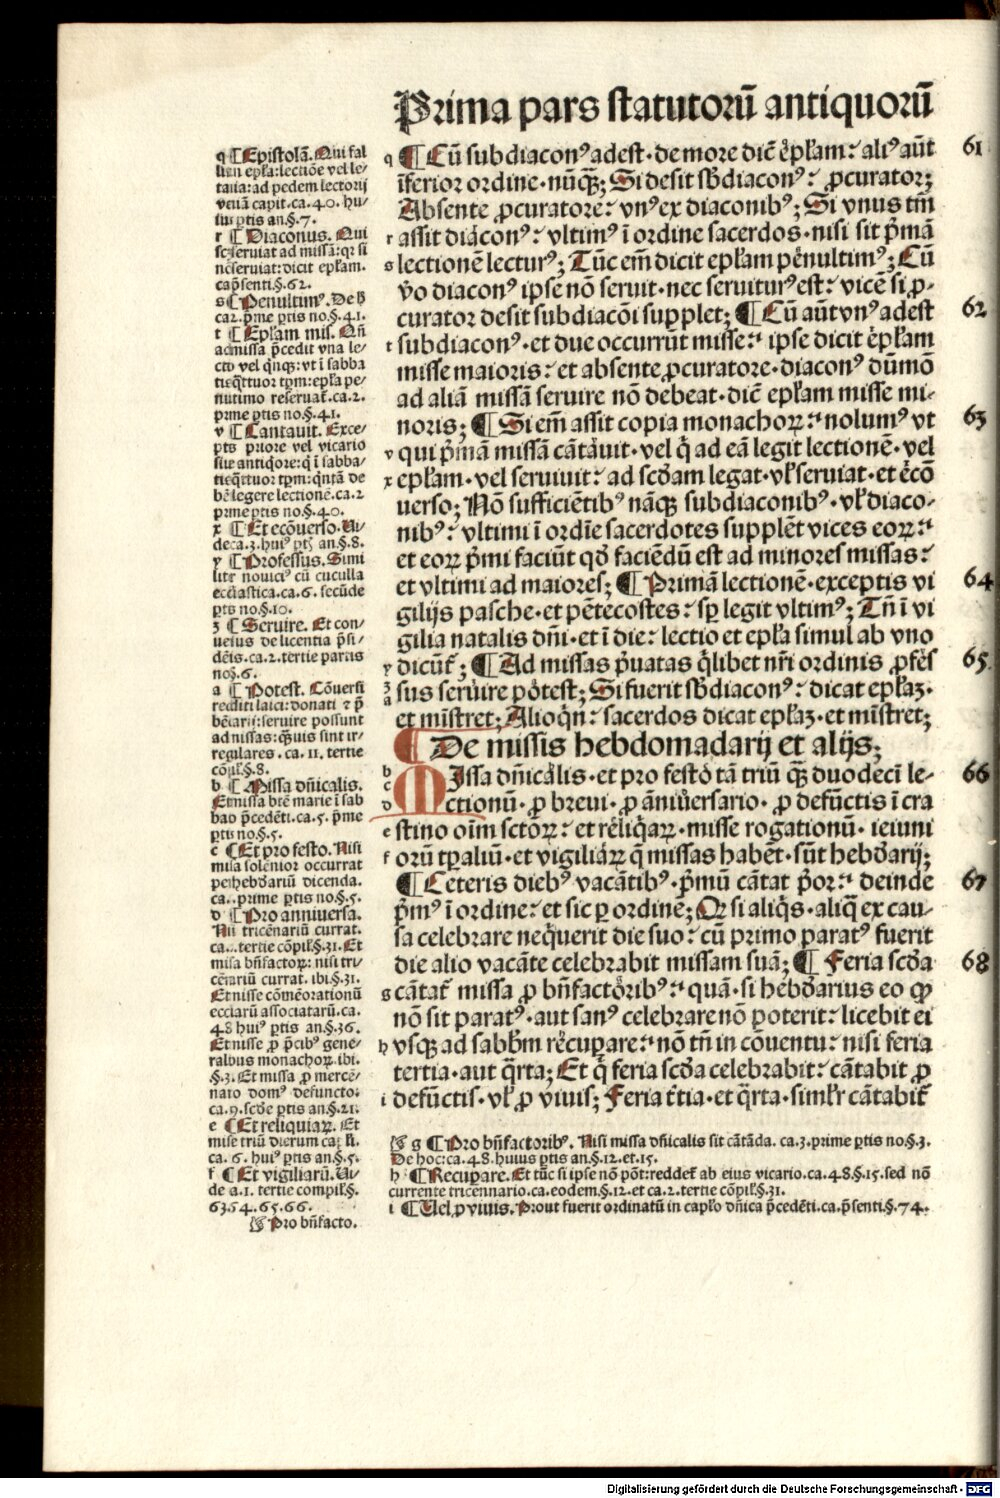 Prima pars statutorū antiquorū
q ¶ Epistolā. Qui fal
lit in epła: lectiōe vel le/
tania: ad pedem lectorij
veniā capit. ca. 40. hu/
ius ꝑtis an. §. 7.
r ¶ Diaconus. Qui
sc̄ seruiat ad missā: qr si
nō seruiat: dicit epłam.
cap̄senti. §. 62.
s ¶ Penultimꝰ. De h̄
ca 2. p̄me ꝑtis no. §. 41.
t ¶ Epłam mis. Qn̄
ad missā p̄cedit vna le/
ctio vel qͥnqꝫ: vt ī sabba
tis qͣttuor tpm: epła pe/
nultimo reseruat̄. ca. 2.
prime ꝑtis no. §. 41.
v ¶ Cantauit. Exce/
pto priore vel vicario
siue antiqͥore: qͥ ī sabba/
tis qͣttuor tpm: qͥntā de
bēt legere lectionē. ca. 2
prime ꝑtis no. §. 40.
x ¶ Et ecōuerso. Vi/
de ca. 3. huiꝰ ꝑtꝭ an. §. 8.
y ¶ Professus. Simi
liter nouiciꝰ cū cuculla
eccłiastica. ca. 6. secūde
ꝑtis no. §. 10.
ꝫ ¶ Seruire. Et con/
uersus de licentia p̄si/
dētis. ca. 2. tertie partis
no. §. 6.
a ¶ Potest. Cōuersi
redditi laici: donati ⁊ p̄
bēdarij: seruire possunt
ad missas: qͣuis sint ir/
regulares. ca. 11. tertie
cōpił. §. 8.
b ¶ Missa dn̄icalis.
Et missa btē marie ī sab
bato p̄cedēti. ca. 5. p̄me
ꝑtis no. §. 5.
c ¶ Et pro festo. Nisi
missa solenior occurrat
per hebdōariū dicenda.
ca. . prime ꝑtis no. §. 5.
d ¶ Pro anniuersa.
Nisi tricēnariū currat.
ca. . tertie cōpił. §. 31. Et
missa bn̄factoꝝ: nisi tri/
cēnariū currat. ibi. §. 31.
Et misse cōmēorationū
eccłiarū associatarū. ca.
48 huiꝰ ꝑtis an. §. 36.
Et misse ꝓ p̄cibꝰ gene/
ralibus monachoꝝ. ibi.
§. 3. Et missa ꝓ mercē/
nario domꝰ defuncto:
ca. 9. scd̄e ꝑtis an. §. 21.
e ¶ Et reliquiaꝝ. Et
misse triū dierum
ca. 6. huiꝰ ꝑtis an. §. 5.
f ¶ Et vigiliarū. Vi/
de a. 1. tertie compił. §.
63. 54. 65. 66.
Pro bn̄facto.
q ¶ Cū subdiaconꝰ adest· de more dic̄ ep̄łam: aliꝰ aūt 61
īferior ordine· nūqꝫ; Si desit sb̄diaconꝰ: ꝓcurator;
Absente ꝓcuratore: vnꝰ ex diaconibꝰ; Si vnus tm̄
r assit diāconꝰ: vltimꝰ ī ordine sacerdos· nisi sit p̄mā
s lectionē lecturꝰ; Tūc em̄ dicit epłam pēnultimꝰ; Cū
v̄o diaconꝰ ipse nō seruit· nec seruiturꝰ est: vicē si ꝓ-
curator desit subdiacōi supplet; ¶ Cū aūt vnꝰ adest 62
t subdiaconꝰ· et due occurrūt misse: ipse dicit ēpłam
misse maioris: et absente ꝓcuratore· diaconꝰ dūmō
ad aliā missā seruire nō debeat· dic̄ epłam misse mi-
noris; ¶ Si em̄ assit copia monachoꝝ: nolumꝰ vt 63
v qui p̄mā missā cātāuit· vel qͥ ad eā legit lectionē· vel
x epłam· vel seruiuit: ad scd̄am legat· vł seruiat· et ēcō
uerso; Nō sufficiētibꝰ nāqꝫ subdiaconibꝰ· vł diaco-
nibꝰ: vltimi ī ordīe sacerdotes supplēt vices eoꝝ:
et eoꝝ p̄mi faciūt qd̄ faciēdū est ad minores missas:
et vltimi ad maiores; ¶ Primā lectionē· exceptis vi 64
gilijs pasche· et pētecostes: sꝑ legit vltimꝰ; Tn̄ ī vi
gilia natalis dn̄i· et ī die: lectio et epła simul ab vno
y dicūt̄; ¶ Ad missas p̄uatas qͥlibet nr̄i ordinis ꝓfēs 65.
ꝫ a sus seruire pōtest; Si fuerit sb̄diaconꝰ: dicat epłaꝫ·
et mīstret; Alioqͥn: sacerdos dicat epłaꝫ· et mīstret;
¶ De missis hebdomadarij et alijs;
b c MIssa dn̄icālis· et pro festō tā triū qꝫ duodecī le- 66
d ctionū· ꝓ breui· ꝓ āniūersario· ꝓ defūctis ī cra
e stino oīm sctōꝝ: et rēliqͥaꝝ· misse rogationū· ieiuni
f orū tꝑaliū· et vigiliāꝝ q̄ missas habēt· sūt hebd̄arij;
¶ Ceteris diebꝰ vacātibꝰ· p̄mū cātat p̄or: deinde 67
p̄mꝰ ī ordine: et sic ꝑ ordinē; Qꝛ si aliqͥs· aliq̄ ex cau-
sa celebrare neqͥuerit die suo: cū primo paratꝰ fuerit
die alio vacāte celebrabit missam suā; ¶ Feria scd̄a 68
g cātat̄ missa ꝓ bn̄factōribꝰ: quā· si hēbd̄arius eo ꝙ
nō sit paratꝰ· aut sanꝰ celebrare nō poterit: licebit ei
h vsqꝫ ad sabbm̄ rēcuperare: nō tn̄ in cōuentu: nisi feria
tertia· aut qͣrta; Et qͥ feria scd̄a celebrabit: cātabit ꝓ
i defūctis· vł ꝓ viuis; Feria t̄tia· et qͣrta· simłr cātabit̄
g ¶ Pro bn̄factoribꝰ. Nisi missa dn̄icalis sit cātāda. ca. 3. prime ꝑtis no. §. 3.
De hoc: ca. 48. huius ꝑtis an. §. 12. et. 15.
h ¶ Recuperare. Et tūc si ipse nō pōt: reddet̄ ab eius vicario. ca. 48. §. 15. sed nō
currente tricennario. ca. eodem. §. 12. et ca. 2. tertie cōpił. §. 31.
i ¶ Uel ꝓ viuis. Prout fuerit ordinatū in capło dn̄ica p̄cedēti. ca. p̄senti. §. 74.
Digitalisierung gefördert durch die Deutsche Forschungsgemeinschaft · DFG